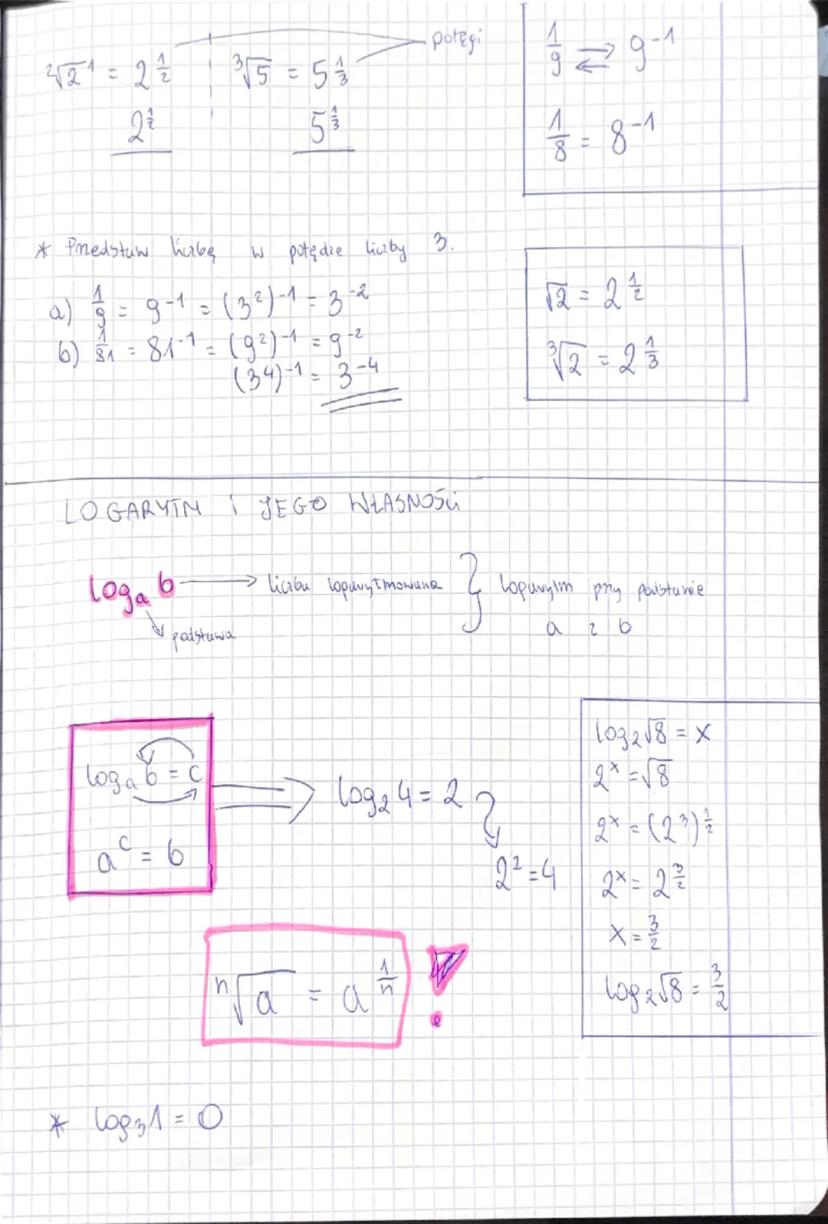 ²√2¹ = 2^½ ³√5 = 5^⅓ potęgi
2^½ 5^⅓
1/9 ⇄ 9⁻¹
1/8 = 8⁻¹
* Przedstaw liczbę w potędze liczby 3.
a) 1/9 = 9⁻¹ = (3²)⁻¹ = 3⁻²
b) 1/81 = 81⁻¹ = (9²)⁻¹ = 9⁻²
(3⁴)⁻¹ = 3⁻⁴
√2 = 2^½
³√2 = 2^⅓
LOGARYTM i JEGO WŁASNOŚCi
logₐ b → liczba logarytmowana } logarytm przy podstawie
podstawa a z b
logₐ b = c ⇒ log₂ 4 = 2
aᶜ = b 2² = 4
log₂√8 = x
2ˣ = √8
2ˣ = (2³)^½
2ˣ = 2^3/2
x = 3/2
log₂√8 = 3/2
ⁿ√a = a^1/n !
* log₃1 = 0